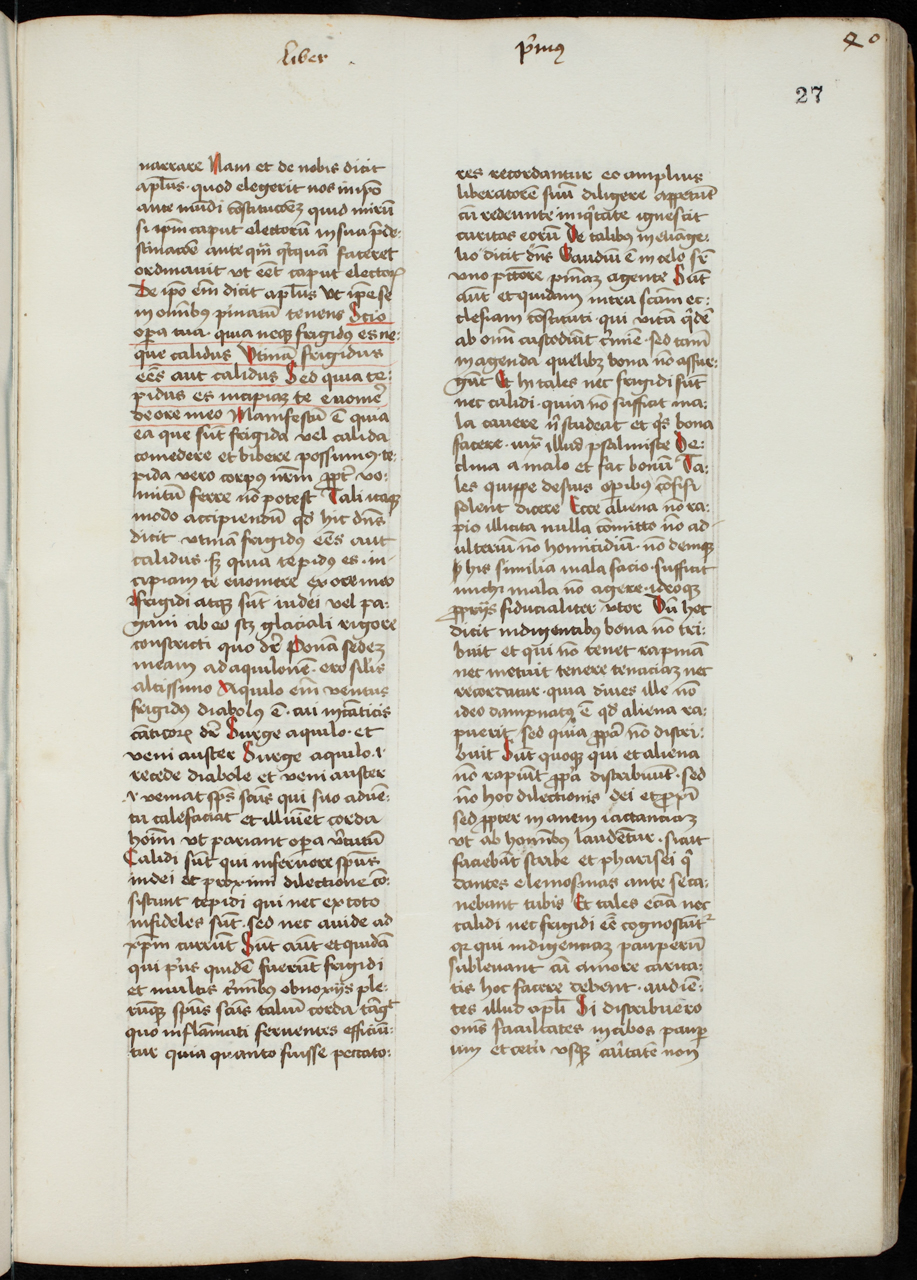 Liber
p̄mꝰ
40
27
narrare Nam et de nobis dicit
apl̄us · quod elegerit nos in ip̄o
ante mūdi cōstitucōez quid mirū
si ip̄m caput electorū in sua p̄de-
stinacōe ante qm̄ qͥtquā faceret
ordinauit vt eēt caput electorꝝ
De ip̄o em̄ dicit apl̄us Vt ip̄e se
in omībus p̄matū tenens Scio
oꝑa tua · quia neqꝫ frigidꝰ es ne-
que calidus Vtinā frigidus
eēs aut calidus Sed quia te-
pidus es incipiaꝫ te euomeꝰ
de ore meo Manifestū ē quia
ea que sūt frigida vel calida
comedere et bibere possumꝰ te-
pida vero corpus nr̄m ꝓpt̄ vo-
mitū ferre nō potest Tali itaqꝫ
modo accipiendū qd̄ hic dn̄s
dicit vtinā frigidꝰ eēs aut
calidus · sꝫ quia tepidꝰ es · in-
cipiam te euomere ex ore meo
Frigidi atqꝫ sūt iudei vel pa-
gani ab eo scꝫ glaciali rigore
constricti quo dr̄ Ponā sedeꝫ
meam ad aquilonē · ero silis
altissimo Aquilo em̄ ventus
frigidꝰ diabolus ē · cui in cāticis
cāticorꝝ dr̄ Surge aquilo · et
veni auster Surge aquilo · i ·
recede diabole et veni auster
· i · veniat sp̄s scūs qui suo aduē-
tu calefaciat et illuīet corda
hoīm vt pariant oꝑa v̄tutū
Calidi sūt qui in feruore sp̄us
in dei et proximi dilectione cō-
sistunt tepidi qui nec ex toto
infideles sūt · sed nec auide ad
xp̄m currūt Sūt aūt et quidā
qui pͥus quidē fuerūt frigidi
et multis cͥmībus obnoxijs ple-
rūqꝫ sp̄us scūs taliū corda tāgͭ
quo inflāmati feruentes efficiū-
tur quia quanto fuisse peccato-
res recordantur eo amplius
liberatorē suū diligere appetūt
cū redeunte iniqͥtate ignescit
caritas eorū De talibꝰ in euāge-
lio dicit dn̄s Gaudiū ē in celo sr̄
vno pctōre pn̄iaꝫ agente Sūt
aūt et quidam intra scām ec-
clesiam cōstituti · qui vitā qͥdē
ab omī custodiūt cͥmīe · sed tam̄
in agenda quelibꝫ bona nō assur-
gūt Et hi tales nec frigidi sūt
nec calidi · quia nō sufficit ma-
la cauere n̄ studeat et qͥs bona
facere · iux̄ illud psalmiste De-
clina a malo et fac bonū Ta-
les quippe desuis oꝑibus cōfisi
solent dicere Ecce aliena nō ra-
pio illicita nulla cōmitto nō ad-
ulteriū nō homicidiū · nō deniqꝫ
hͦ his similia mala facio · sufficit
michi mala nō agere · ideoqꝫ
ꝓprijs fiducialiter vtor Dū hoc
dicit indigentibꝰ bona nō tri-
buit et qui nō tenet rapinā
nec metuit tenere tenaciaꝫ nec
recordatur · quia diues ille nō
ideo dampnatꝰ ē qd̄ aliena ra-
puerit sed quia ꝓpͥa nō distri-
buit Sūt quoqꝫ qui et aliena
nō rapiūt ꝓpͥa distribuūt · sed
nō hoc dilectionis dei et ꝓxi
sed ꝓpter inanem iactanciaꝫ
vt ab hominibꝰ laudētur · sicut
faciebāt scribe et pharisei qͥ
dantes elemosinas ante se ca-
nebant tubis Et tales eciā nec
calidi nec frigidi eē cognoscūtᷣ
qꝛ qui indigenciaꝫ pauperū
subleuant cū amore carita-
tis hoc facere debent · audiē-
tes illud apl̄i Si distribuero
om̄s facultates in cibos pauꝑ
um et cetͣ vsqꝫ caritatē non